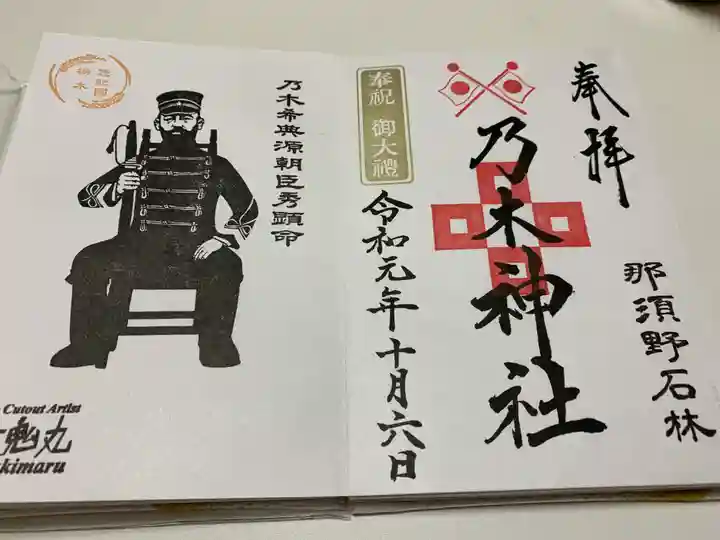 奉拝
那須野石林
乃木神社
奉祝 御大禮
令和元年十月六日
乃木希典源朝臣秀顕命
栃木
Cutout Artist
鬼丸
kimaru